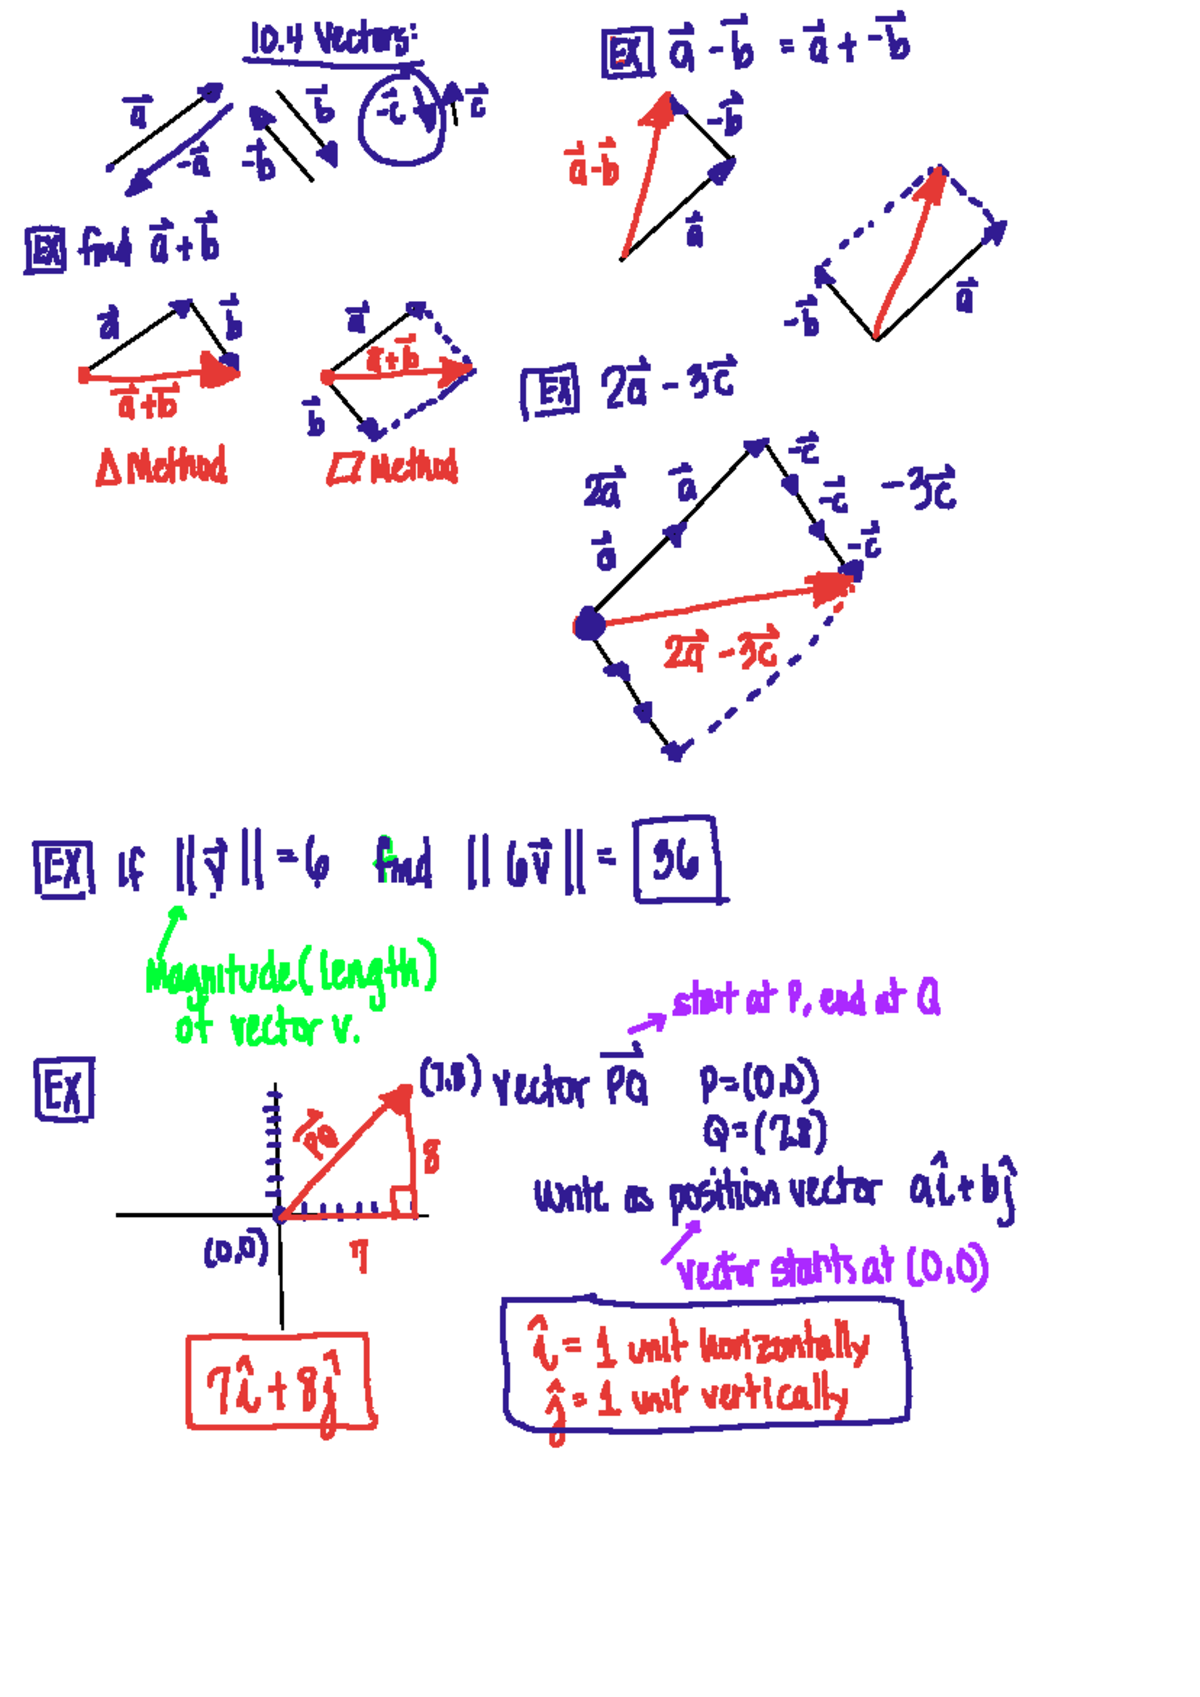 10.4 Vectors:
a⃗
-a⃗
b⃗
-b⃗
-c⃗
c⃗
EX find a⃗ + b⃗
a⃗
b⃗
a⃗+b⃗
Δ Method
a⃗
a⃗+b⃗
b⃗
▱ Method
EX a⃗ - b⃗ = a⃗ + -b⃗
-b⃗
a⃗-b⃗
a⃗
-b⃗
a⃗
EX 2a⃗ - 3c⃗
2a⃗
a⃗
a⃗
-c⃗
-c⃗
-c⃗
-3c⃗
2a⃗ - 3c⃗
EX if ||v⃗|| = 6 find ||6v⃗|| = 36
Magnitude (length)
of vector v.
start at P, end at Q
EX
(7,8)
vector PQ⃗ P=(0,0)
Q=(7,8)
PQ⃗
8
7
(0,0)
write as position vector aî+bĵ
vector starts at (0,0)
î = 1 unit horizontally
ĵ = 1 unit vertically
7î+8ĵ